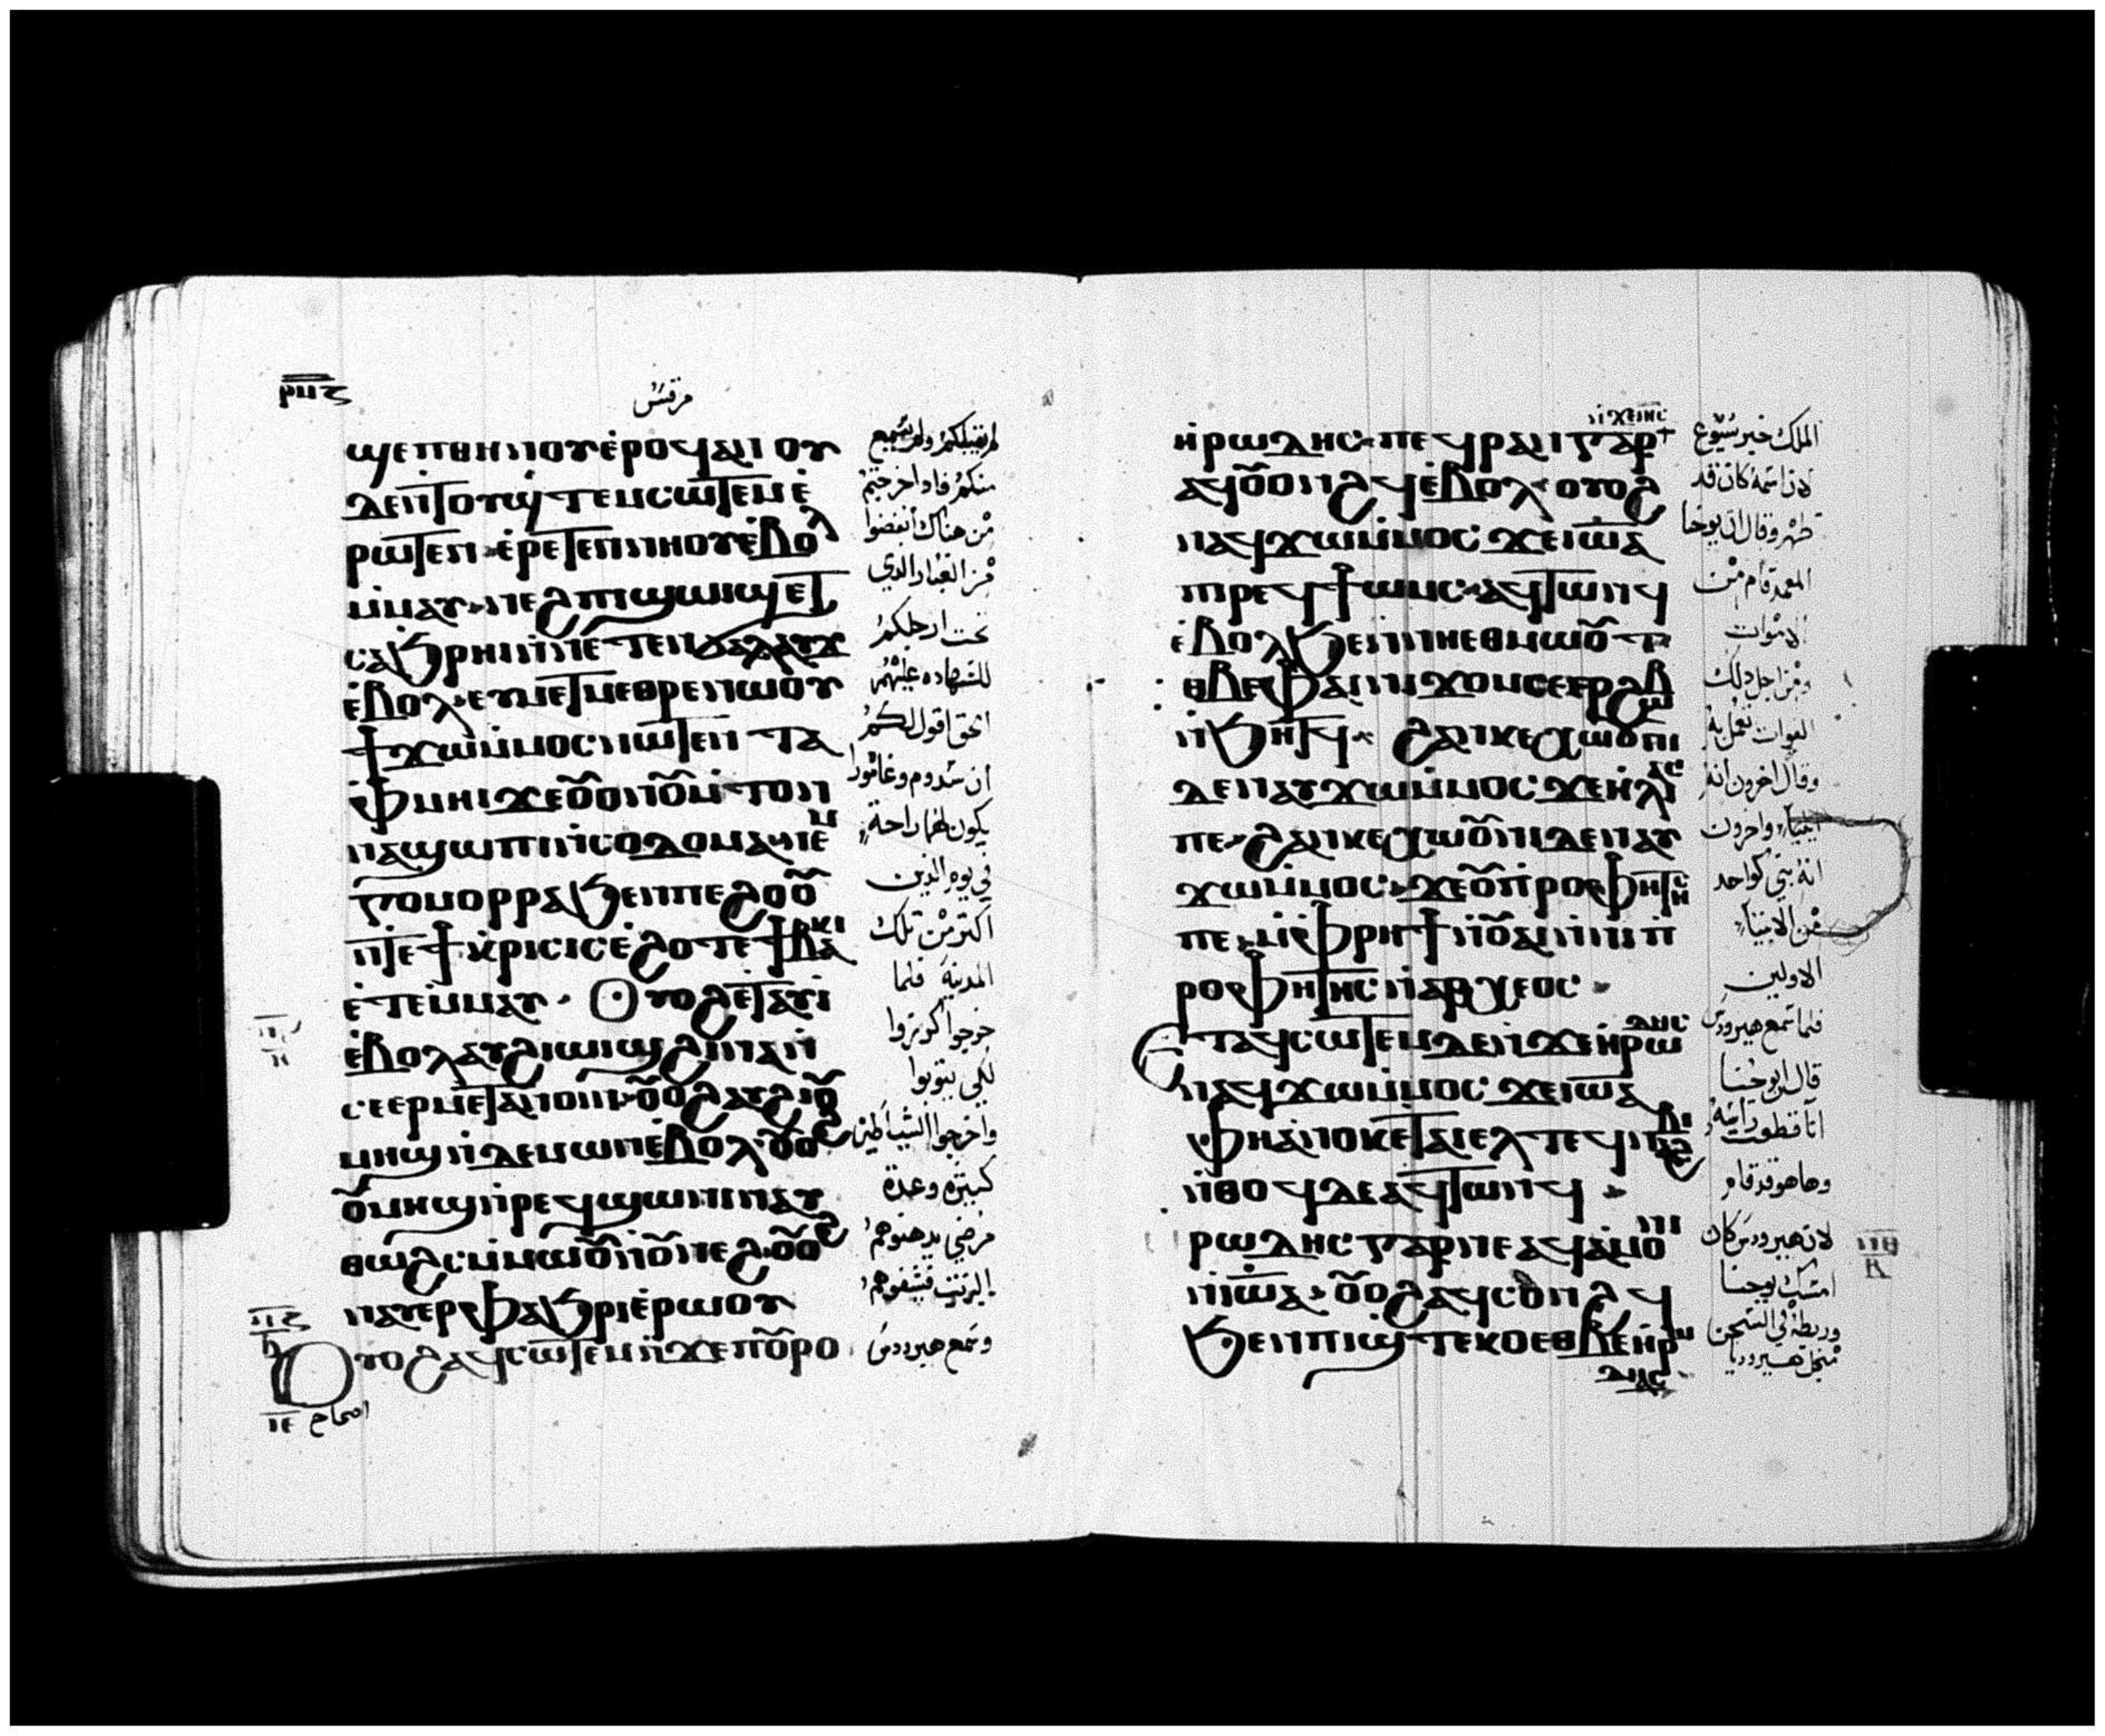 ⲣⲙⲍ
مرقس
ϣⲉⲡⲑⲏⲛⲟⲩ ⲉ̀ⲣⲟϥ ⲁⲛ ⲓ ⲟⲩ
ⲇⲉ ⲛ̀ⲧⲟⲩϣ̀ⲧⲉⲙⲥⲱⲧⲉⲙ ⲉ̀
ⲣⲱⲧⲉⲛ ⲉ̀ⲣⲉⲧⲉⲛⲛⲏⲟⲩ ⲉ̀ⲃⲟⲗ
ⲙ̀ⲙⲁⲩ ⲛⲉϩ ⲡⲓϣⲱⲓϣ ⲉⲧ
ⲥⲁϧⲣⲏⲓ ⲛ̀ⲛⲉⲧⲉⲛϭⲁⲗⲁⲩϫ
ⲉ̀ⲃⲟⲗ ⲉⲩⲙⲉⲧⲙⲉⲑⲣⲉ ⲛⲱⲟⲩ
ϯϫⲱ ⲙ̀ⲙⲟⲥ ⲛⲱⲧⲉⲛ ⲧⲁ
ⲫⲙⲏⲓ ϫⲉ ⲟ̅ⲟⲛ ⲟ̅ⲙ̀ⲧⲟⲛ
ⲛⲁϣⲱⲡⲓ ⲛ̀ⲥⲟⲇⲟⲙⲁ ⲛⲉⲙ
ⲅⲟⲙⲟⲣⲣⲁ ϧⲉⲛ ⲡⲉϩⲟⲟ̅
ⲛ̀ⲧⲉ ϯⲕⲣⲓⲥⲓⲥ ⲉ̀ϩⲟⲧⲉ ϯⲃⲁⲕⲓ
ⲉ̀ⲧⲉⲙ̀ⲙⲁⲩ. Ⲟⲩⲟϩ ⲉⲧⲁⲩⲓ̀
ⲉ̀ⲃⲟⲗ ⲁⲩϩⲓⲱⲓϣ ϩⲓⲛⲁ ⲛ̀
ⲥⲉⲉⲣⲙⲉⲧⲁⲛⲟⲓⲛ ⲟ̅ⲟϩ ⲁⲩϩⲓⲟ̅
ⲙⲏϣ ⲛ̀ⲇⲉⲙⲱⲛ ⲉ̀ⲃⲟⲗ ⲟ̅ⲟϩ
ⲟ̅ⲙⲏϣ ⲛ̀ⲣⲉϥϣⲱⲛⲓ ⲛⲁⲩ
ⲑⲱϩⲥ ⲙ̀ⲙⲱⲟ̅ ⲛ̀ⲟ̅ⲛⲉϩ ⲟ̅ⲟϩ
ⲛⲁⲩⲉⲣⲫⲁϧⲣⲓ ⲉ̀ⲣⲱⲟⲩ
Ⲟⲩⲟϩ ⲁϥⲥⲱⲧⲉⲙ ⲛ̀ϫⲉ ⲡⲟ̅ⲣⲟ
ⲓⲉ اصحاح
لم يقبلكم ولم يسمع
منكم فاذا خرجتم
من هناك انفضوا
من الغبار الذي
تحت ارجلكم
للشهاده عليهم
الحق اقول لكم
ان سدوم وغامورا
يكون لهما راحة
في يوم الدين
اكثر من تلك
المدينة فلما
خرجوا كرزوا
لكي يتوبوا
واخرجوا الشياطين
كثيرة وعدة
مرضي يدهنوهم
الزيت فيشفوهم
وسمع هيرودس
ⲛ̀ϫⲉⲏⲥ
ⲏ̀ⲣⲱⲇⲏⲥ ⲡⲉϥⲣⲁⲛ ⲅⲁⲣ
ⲁϥⲟ̅ⲟⲛϩϥ ⲉ̀ⲃⲟⲗ ⲟⲩⲟϩ
ⲛⲁϥϫⲱ ⲙ̀ⲙⲟⲥ ϫⲉ ⲓⲱ̅ⲁ
ⲡⲓⲣⲉϥϯⲱⲙⲥ ⲁϥⲧⲱⲛϥ
ⲉ̀ⲃⲟⲗ ϧⲉⲛ ⲛⲏⲉⲑⲙⲱⲟ̅ⲧ
ⲉⲑⲃⲉ ⲫⲁⲓ ⲛⲓϫⲟⲙ ⲥⲉⲉⲣϩⲱⲃ
ⲛ̀ϧⲏⲧϥ ϩⲁⲛⲕⲉⲭⲱⲟ̅ⲛⲓ
ⲇⲉ ⲛⲁⲩϫⲱ ⲙ̀ⲙⲟⲥ ϫⲉ ⲏ̀ⲗⲓⲁⲥ
ⲡⲉ ϩⲁⲛⲕⲉⲭⲱⲟ̅ⲛⲓ ⲇⲉ ⲛⲁⲩ
ϫⲱ ⲙ̀ⲙⲟⲥ ϫⲉ ⲟ̅ⲡⲣⲟⲫⲏⲧⲏⲥ
ⲡⲉ ⲙ̀ⲫⲣⲏϯ ⲛ̀ⲟ̅ⲁⲓ ⲛ̀ⲛⲓⲡ
ⲣⲟⲫⲏⲧⲏⲥ ⲛ̀ⲁⲣⲭⲉⲟⲥ
Ⲉⲧⲁϥⲥⲱⲧⲉⲙ ⲇⲉ ⲛ̀ϫⲉ ⲏ̀ⲣⲱⲇⲏⲥ
ⲛⲁϥϫⲱ ⲙ̀ⲙⲟⲥ ϫⲉ ⲓⲱ̅ⲁ
ⲫⲏ ⲁⲛⲟⲕ ⲉⲧⲁⲓⲉⲗ ⲧⲉϥⲛⲁϩⲃⲓ
ⲛ̀ⲑⲟϥ ⲇⲉ ⲁϥⲧⲱⲛϥ
ⲣⲱⲇⲏⲥ ⲅⲁⲣ ⲡⲉ ⲁϥⲁ̀ⲙⲟⲛⲓ
ⲛ̀ⲓⲱ̅ⲁ ⲟ̅ⲟϩ ⲁϥⲥⲟⲛϩϥ
ϧⲉⲛ ⲡⲓϣ̀ⲧⲉⲕⲟ ⲉⲑⲃⲉ ⲏ̀ⲣⲱ
ⲇⲓⲁⲥ
الملك خبر يسوع
لان اسمه كان قد
ظهر وقال ان يوحنا
المعمد قام من
الاموات
ومن اجل ذلك
القوات تعمل به
وقال اخرون انه
ايلياء واخرون
انه نبي كواحد
من الانبياء
الاولين
فلما سمع هيرودس
قال ان يوحنا
انا قطعت راسه
وها هو قد قام
لان هيرودس كان
امسك يوحنا
وربطه في السجن
من اجل هيروديا